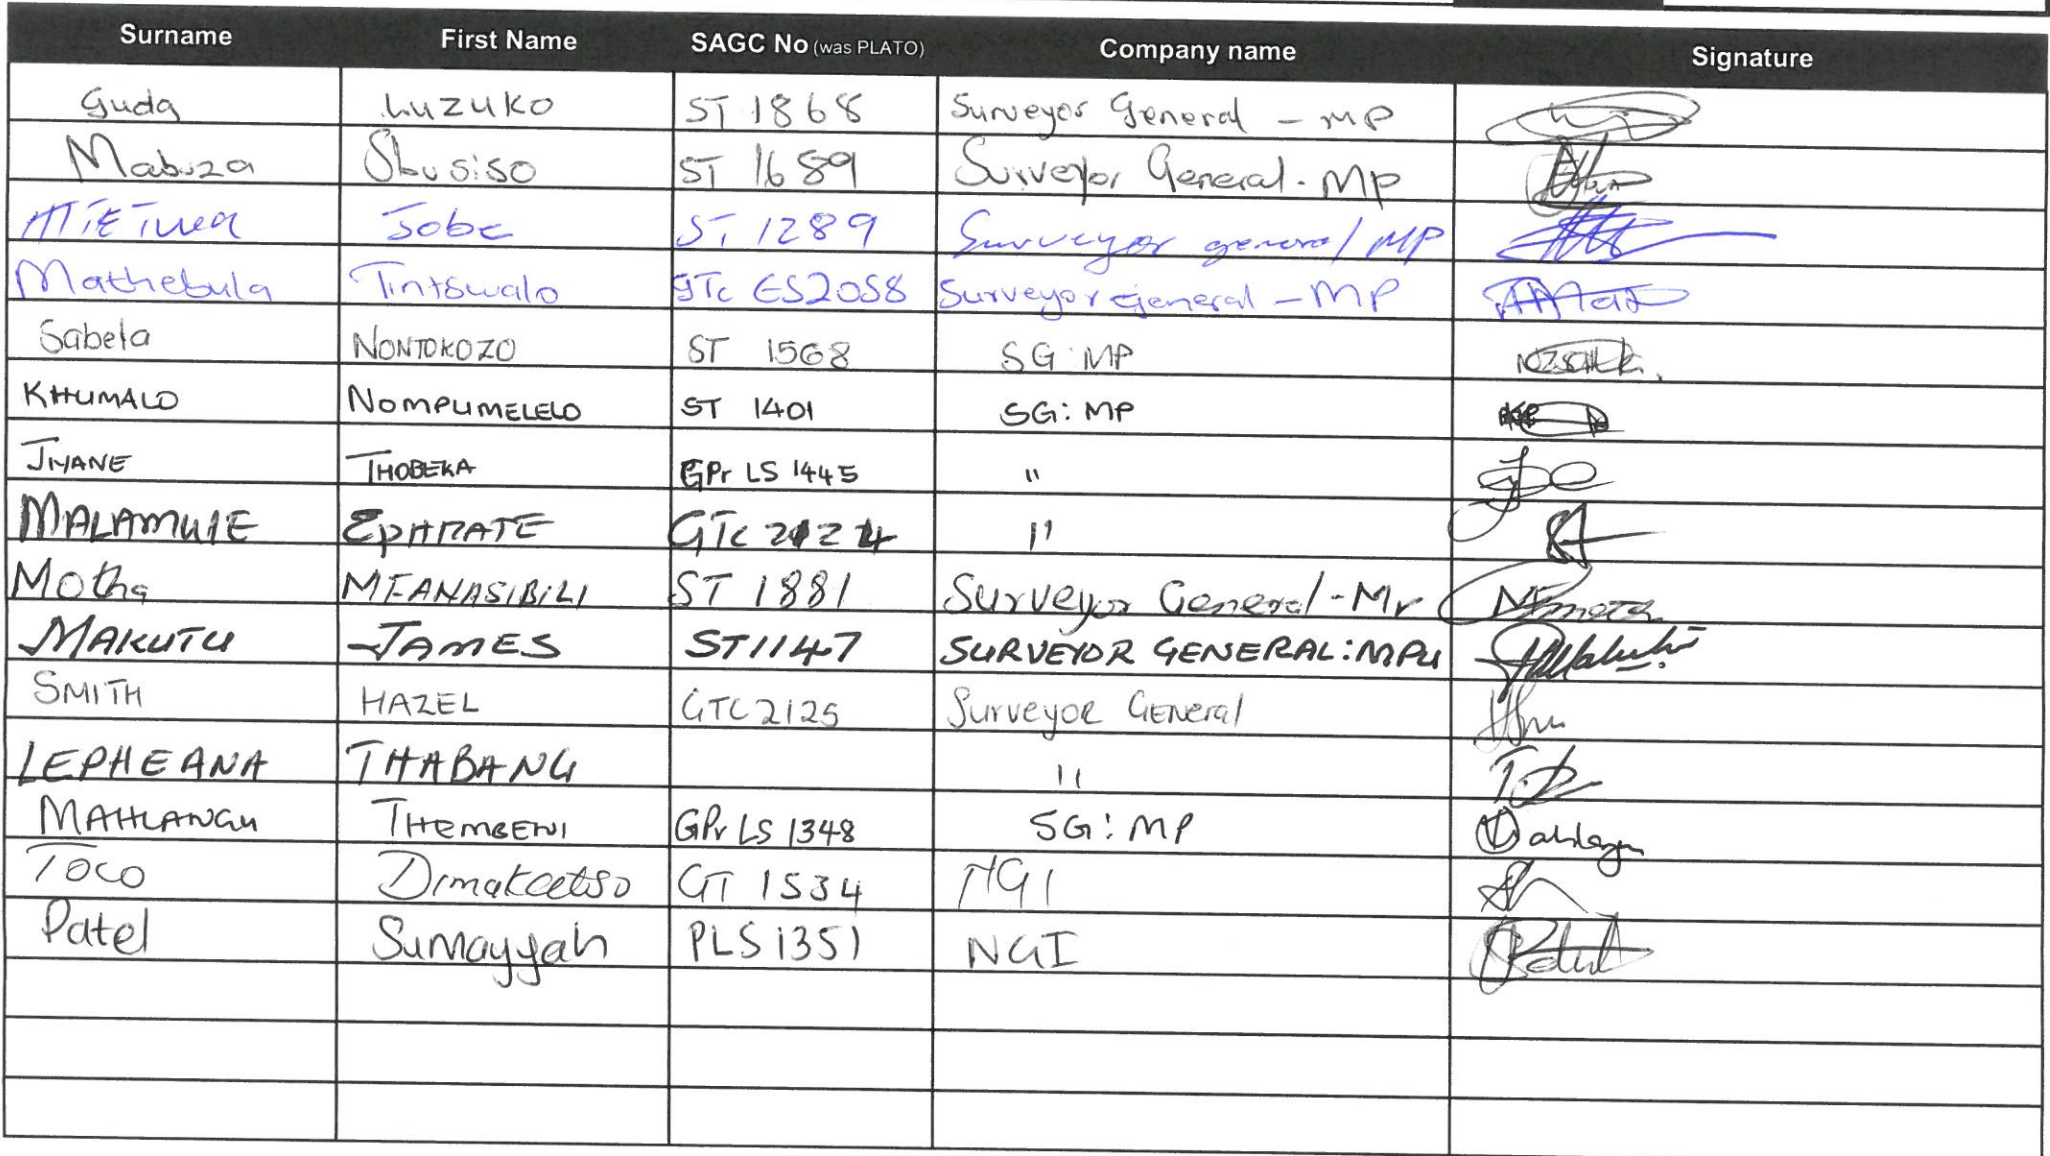 Surname First Name SAGC No (was PLATO) Company name Signature
Guda Luzuko ST 1868 Surveyor General - MP
Mabuza Sbusiso ST 1689 Surveyor General - MP
Jobe ST 1289 Surveyor general MP
Mathebula Tintswalo GTc ES2058 Surveyor general - MP
Sabela NONTOKOZO ST 1568 SG: MP
KHUMALO NOMPUMELELO ST 1401 SG: MP
JIYANE THOBEKA GPr LS 1445 "
MALAMULE EPHRATE "
Motha MFANASIBILI ST 1881 Surveyor General
MAKUTU JAMES ST1147 SURVEYOR GENERAL: MPU
SMITH HAZEL GTC 2125 Surveyor GENERAL
LEPHEANA THABANG "
MAHLANGU THEMBENI GPr LS 1348 SG: MP
TOCO Dimakatso GT 1534 NGI
Patel Sumayyah PLS 1351 NGI